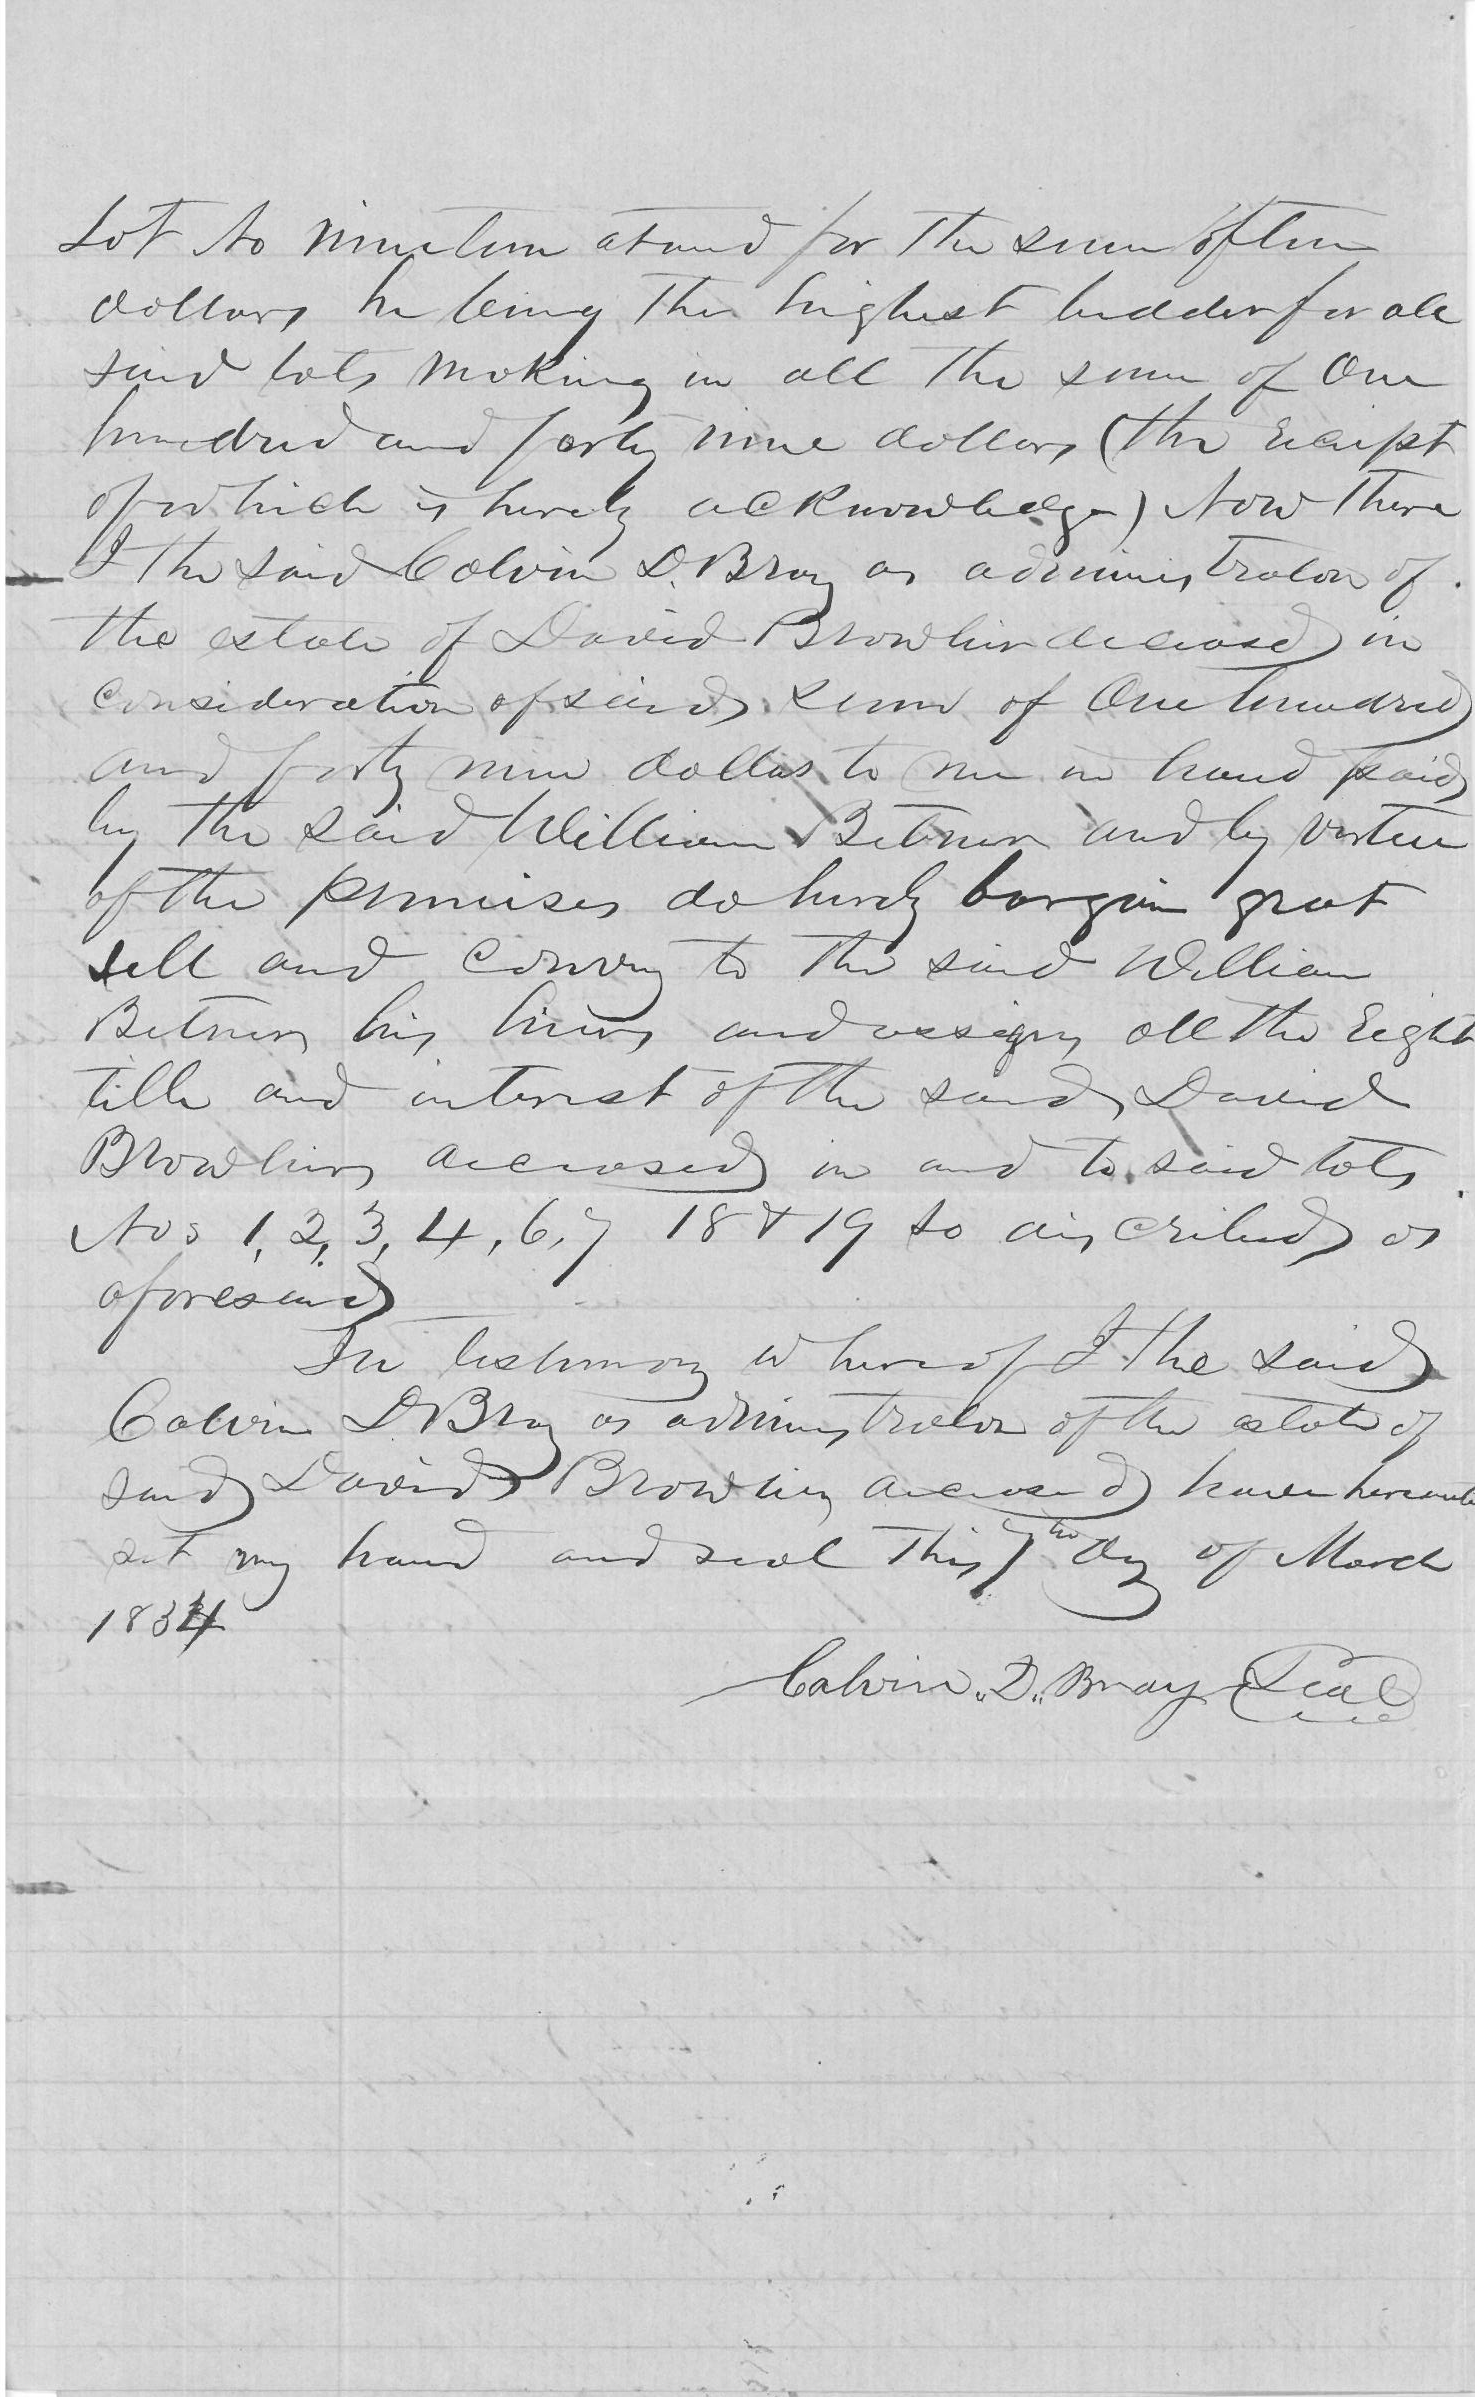 Lot No Nineteen at and for the sum of ten
dollars he being the highest bidder for all
said lots making in all the sum of One
hundred and forty nine dollars (the Reciept
of which is hereby acknowledge) Now There
I the said Calvin D. Bray as administrator of
the estate of David Browhin deceased in
consideration of said sum of One hundred
and forty nine dollars to me in hand paid
by the said William Bitner and by vertue
of the premises do hereby bargin grat
sell and convey to the said William
Bitner his heirs and assigns all the Right
title and interest of the said David
Browhin deceased in and to said lots
Nos 1, 2, 3, 4, 6, 7 18 & 19 so discribed as
aforesaid
In testimony whereof I the said
Calvin D Bray as administrator of the estate of
said David Browhin deceased have hereunto
set my hand and seal this 7th day of March
1834
Calvin "D" Bray Seal